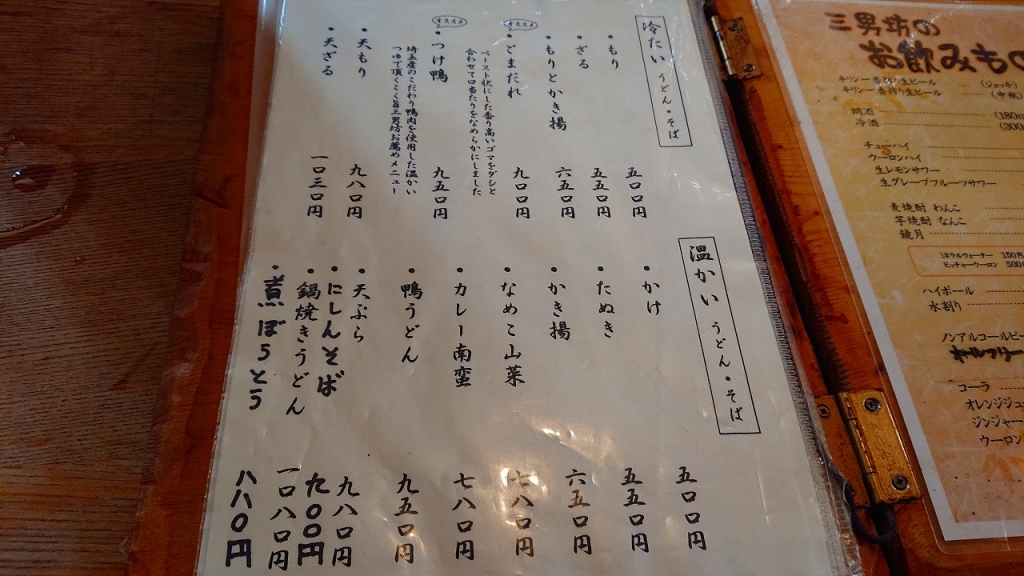 冷たい うどん・そば
・もり 五五〇円
・ざる 五五〇円
・もりとかき揚 六五〇円
オススメ
・ごまだれ 九〇〇円
ペースト状にした香り高いゴマをダシと
合わせて口当たりをなめらかにしました
オススメ
・つけ鴨 九五〇円
埼玉産のこだわり鴨肉を使用した温かい
つゆで頂くこく旨三男坊お薦めメニュー
・天もり 九八〇円
・天ざる 一〇三〇円
温かい うどん・そば
・かけ 五〇〇円
・たぬき 五五〇円
・かき揚 六五〇円
・なめこ山菜 七八〇円
・カレー南蛮 七八〇円
・鴨うどん 九五〇円
・天ぷら 九八〇円
・にしんそば 九〇〇円
・鍋焼きうどん 一〇八〇円
・煮ぼうとう 八八〇円
三男坊の
お飲みもの
キリン一番搾り生ビール (ジョッキ)
キリン一番搾り生ビール (中瓶)
燗酒 (180m
冷酒 (300m
チューハイ
ウーロンハイ
生レモンサワー
生グレープフルーツサワー
麦焼酎 わんこ
芋焼酎 なんこ
鏡月
ミネラルウォーター 150円
ピッチャーウーロン 500
ハイボール
水割り
ノンアルコールビー
オールフリー
コーラ
オレンジジュ
ジンジャー
ウーロン